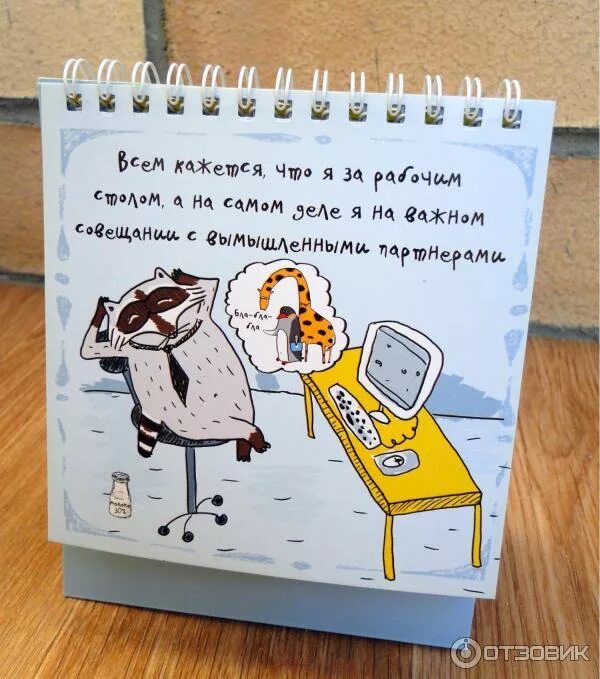 Всем кажется, что я за рабочим
столом, а на самом деле я на важном
совещании с вымышленными партнерами
Бла-бла-
бла
молоко
30%
ОТЗОВИК